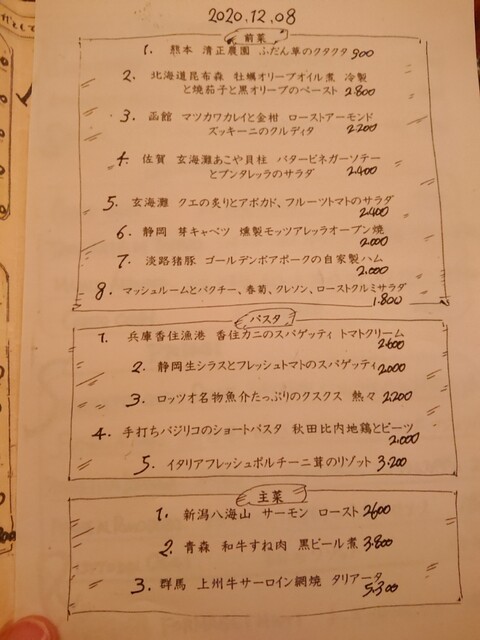 2020.12.08
前菜
1. 熊本 清正農園 ふだん草のクタクタ 900
2. 北海道昆布森 牡蠣オリーブオイル煮 冷製
と焼茄子と黒オリーブのペースト 2.800
3. 函館 マツカワカレイと金柑 ローストアーモンド
ズッキーニのクルディタ 2.200
4. 佐賀 玄海灘あこや貝柱 バタービネガーソテー
とプンタレッラのサラダ 2.400
5. 玄海灘 クエの炙りとアボカド、フルーツトマトのサラダ
2.400
6. 静岡 芽キャベツ 燻製モッツアレッラオーブン焼
2.000
7. 淡路猪豚 ゴールデンボアポークの自家製ハム
2.000
8. マッシュルームとパクチー、春菊、クレソン、ローストクルミサラダ
1.800
パスタ
1. 兵庫香住漁港 香住カニのスパゲッティ トマトクリーム
2.600
2. 静岡生シラスとフレッシュトマトのスパゲッティ 2000
3. ロッツオ名物魚介たっぷりのクスクス 熱々 2.200
4. 手打ちバジリコのショートパスタ 秋田比内地鶏とビーツ
2.000
5. イタリアフレッシュポルチーニ茸のリゾット 3.200
主菜
1. 新潟八海山 サーモン ロースト 2600
2. 青森 和牛すね肉 黒ビール煮 3.800
3. 群馬 上州牛サーロイン網焼 タリアータ
5.300